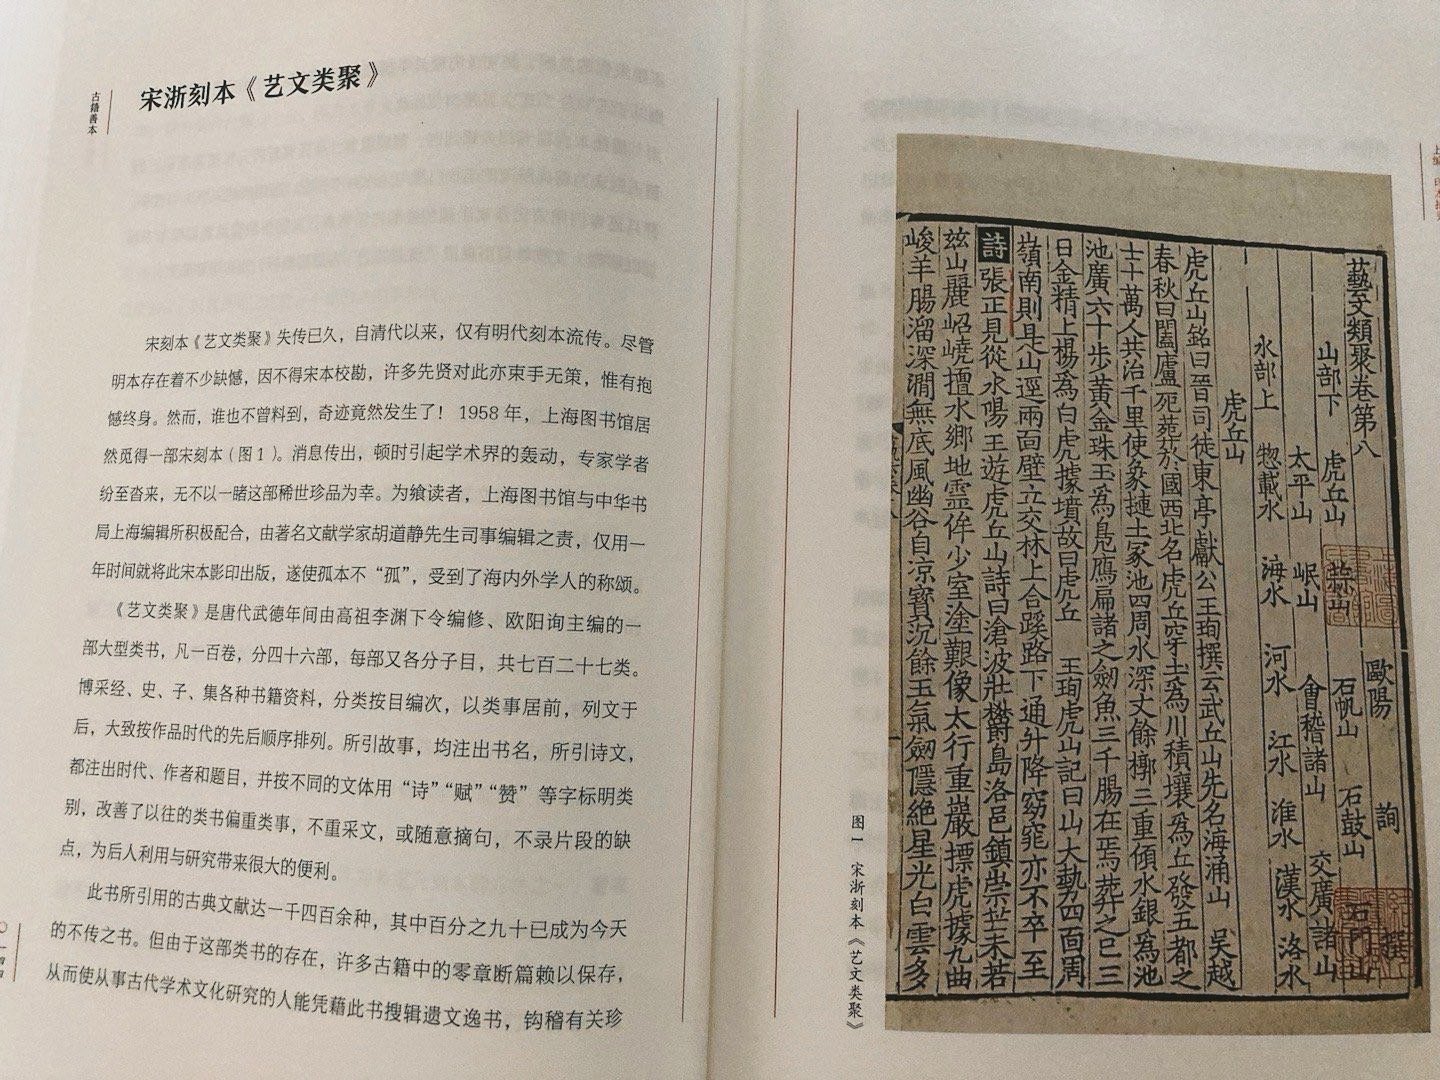 宋浙刻本《艺文类聚》
古籍善本
宋刻本《艺文类聚》失传已久，自清代以来，仅有明代刻本流传。尽管
明本存在着不少缺憾，因不得宋本校勘，许多先贤对此亦束手无策，惟有抱
憾终身。然而，谁也不曾料到，奇迹竟然发生了！1958年，上海图书馆居
然觅得一部宋刻本（图1）。消息传出，顿时引起学术界的轰动，专家学者
纷至沓来，无不以一睹这部稀世珍品为幸。为飨读者，上海图书馆与中华书
局上海编辑所积极配合，由著名文献学家胡道静先生司事编辑之责，仅用一
年时间就将此宋本影印出版，遂使孤本不“孤”，受到了海内外学人的称颂。
《艺文类聚》是唐代武德年间由高祖李渊下令编修、欧阳询主编的一
部大型类书，凡一百卷，分四十六部，每部又各分子目，共七百二十七类。
博采经、史、子、集各种书籍资料，分类按目编次，以类事居前，列文于
后，大致按作品时代的先后顺序排列。所引故事，均注出书名，所引诗文，
都注出时代、作者和题目，并按不同的文体用“诗”“赋”“赞”等字标明类
别，改善了以往的类书偏重类事，不重采文，或随意摘句，不录片段的缺
点，为后人利用与研究带来很大的便利。
此书所引用的古典文献达一千四百余种，其中百分之九十已成为今天
的不传之书。但由于这部类书的存在，许多古籍中的零章断篇赖以保存，
从而使从事古代学术文化研究的人能凭藉此书搜辑遗文逸书，钩稽有关珍
藝文類聚卷第八
歐陽 詢 撰
山部下 虎丘山 蒜山 石帆山 石鼓山 石門山
太平山 岷山 會稽諸山 交廣諸山
水部上 惣載水 海水 河水 江水 淮水 漢水 洛水
虎丘山 吳越
春秋曰闔廬死葬於國西北名虎丘穿土為川積壤為丘發五都之
士十萬人共治千里使象摙土冢池四周水深丈餘槨三重傾水銀為池
池廣六十步黃金珠玉為鳧鴈扁諸之劒魚三千腸在焉葬之已三
日金精上揚為白虎據墳故曰虎丘 王珣虎山記曰山大勢四面周
嶺南則是山逕兩面壁立交林上合蹊路下通升降窈窕亦不卒至
虎丘山銘曰晉司徒東亭獻公王珣撰云武丘山先名海涌山
詩 張正見從永陽王遊虎丘山詩曰滄波壯鬱島洛邑鎮崇芒未若
茲山麗岧嶢擅水鄉地靈侔少室塗艱像太行重巖標虎據九曲
峻羊腸溜深澗無底風幽谷自凉寶沉餘玉氣劒隱絶星光白雲多
图一 宋浙刻本《艺文类聚》